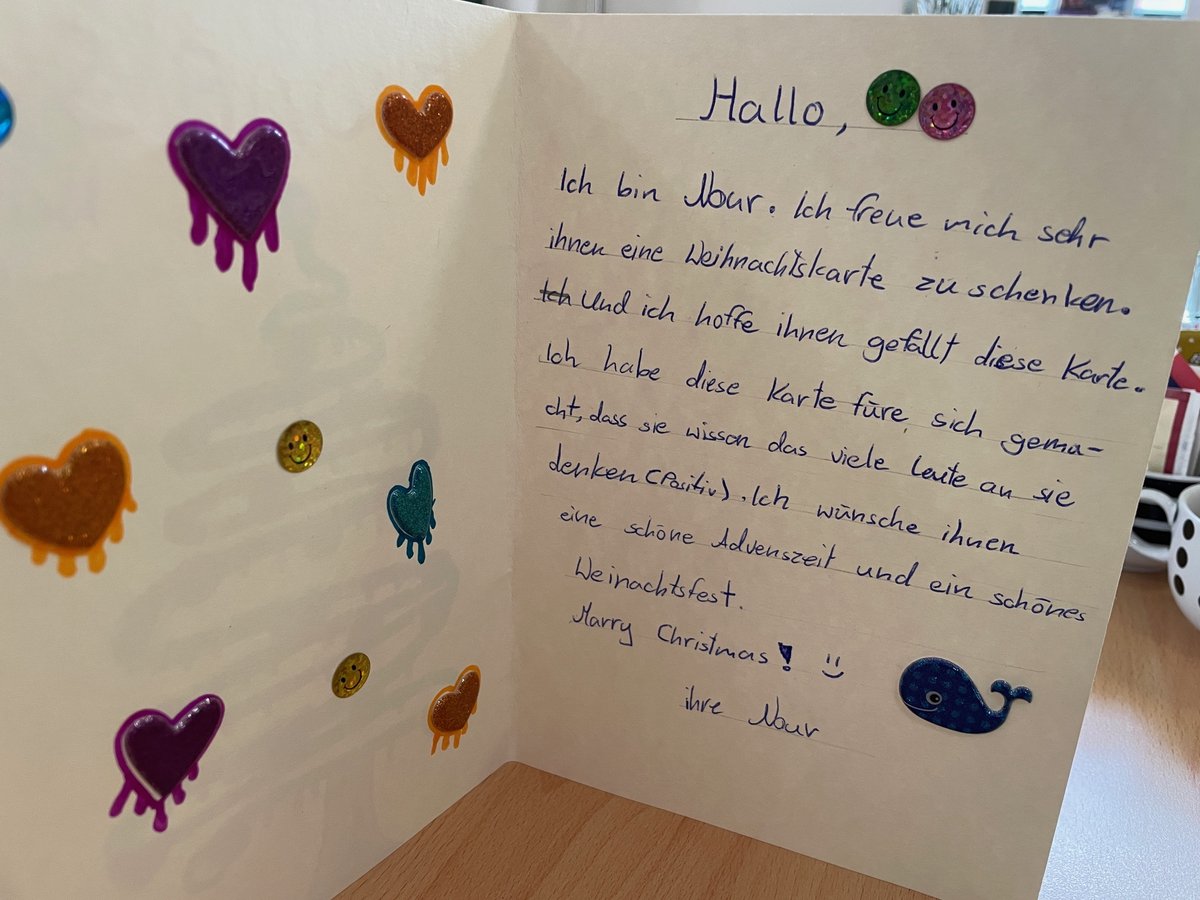 Hallo,
Ich bin Nour. Ich freue mich sehr
ihnen eine Weihnachtskarte zu schenken.
Ich Und ich hoffe ihnen gefällt diese Karte.
Ich habe diese Karte füre sich gema-
cht, dass sie wissen das viele Leute an sie
denken (Positiv). Ich wünsche ihnen
eine schöne Advenszeit und ein schönes
Weinachtsfest.
Marry Christmas!
ihre Nour